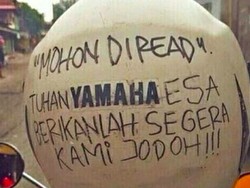 "MOHON DIREAD".
TUHAN YAMAHA ESA
BERIKANLAH SEGERA
KAMI JODOH!!!